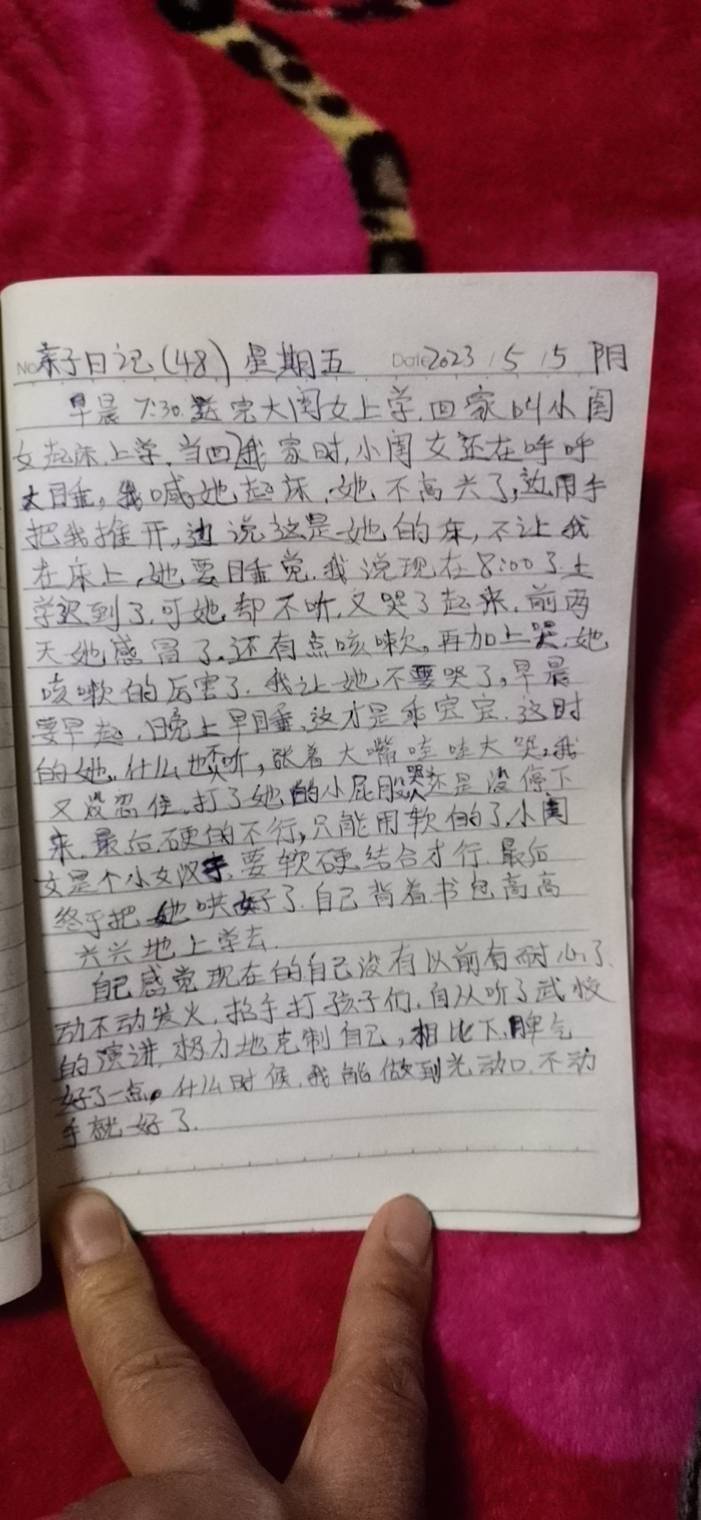 No 亲子日记(48) 星期五 Date 2023 / 5 / 5 阴
早晨7:30.送完大闺女上学.回家叫小闺
女起床.上学.当回到我家时,小闺女还在呼呼
大睡。我喊她起床.她不高兴了,边用手
把我推开,边说这是她的床,不让我
在床上.她要睡觉.我说现在8:00了.上
学迟到了.可她却不听.又哭了起来.前两
天她感冒了.还有点咳嗽。再加上哭.她
咳嗽的厉害了.我让她不要哭了,早晨
要早起.晚上早睡.这才是乖宝宝.这时
的她.什么也不听,张着大嘴哇哇大哭.我
又没忍住.打了她的小屁股.哭还是没停下
来.最后硬的不行,只能用软的了.小闺
女是个小女汉子.要软硬结合才行.最后
终于把她哄好了.自己背着书包高高
兴兴地上学去.
自己感觉现在的自己没有以前有耐心了.
动不动发火.抬手打孩子们.自从听了武校
的演讲.极力地克制自己,相比下.脾气
好了一点。什么时候.我能做到光动口.不动
手就好了.